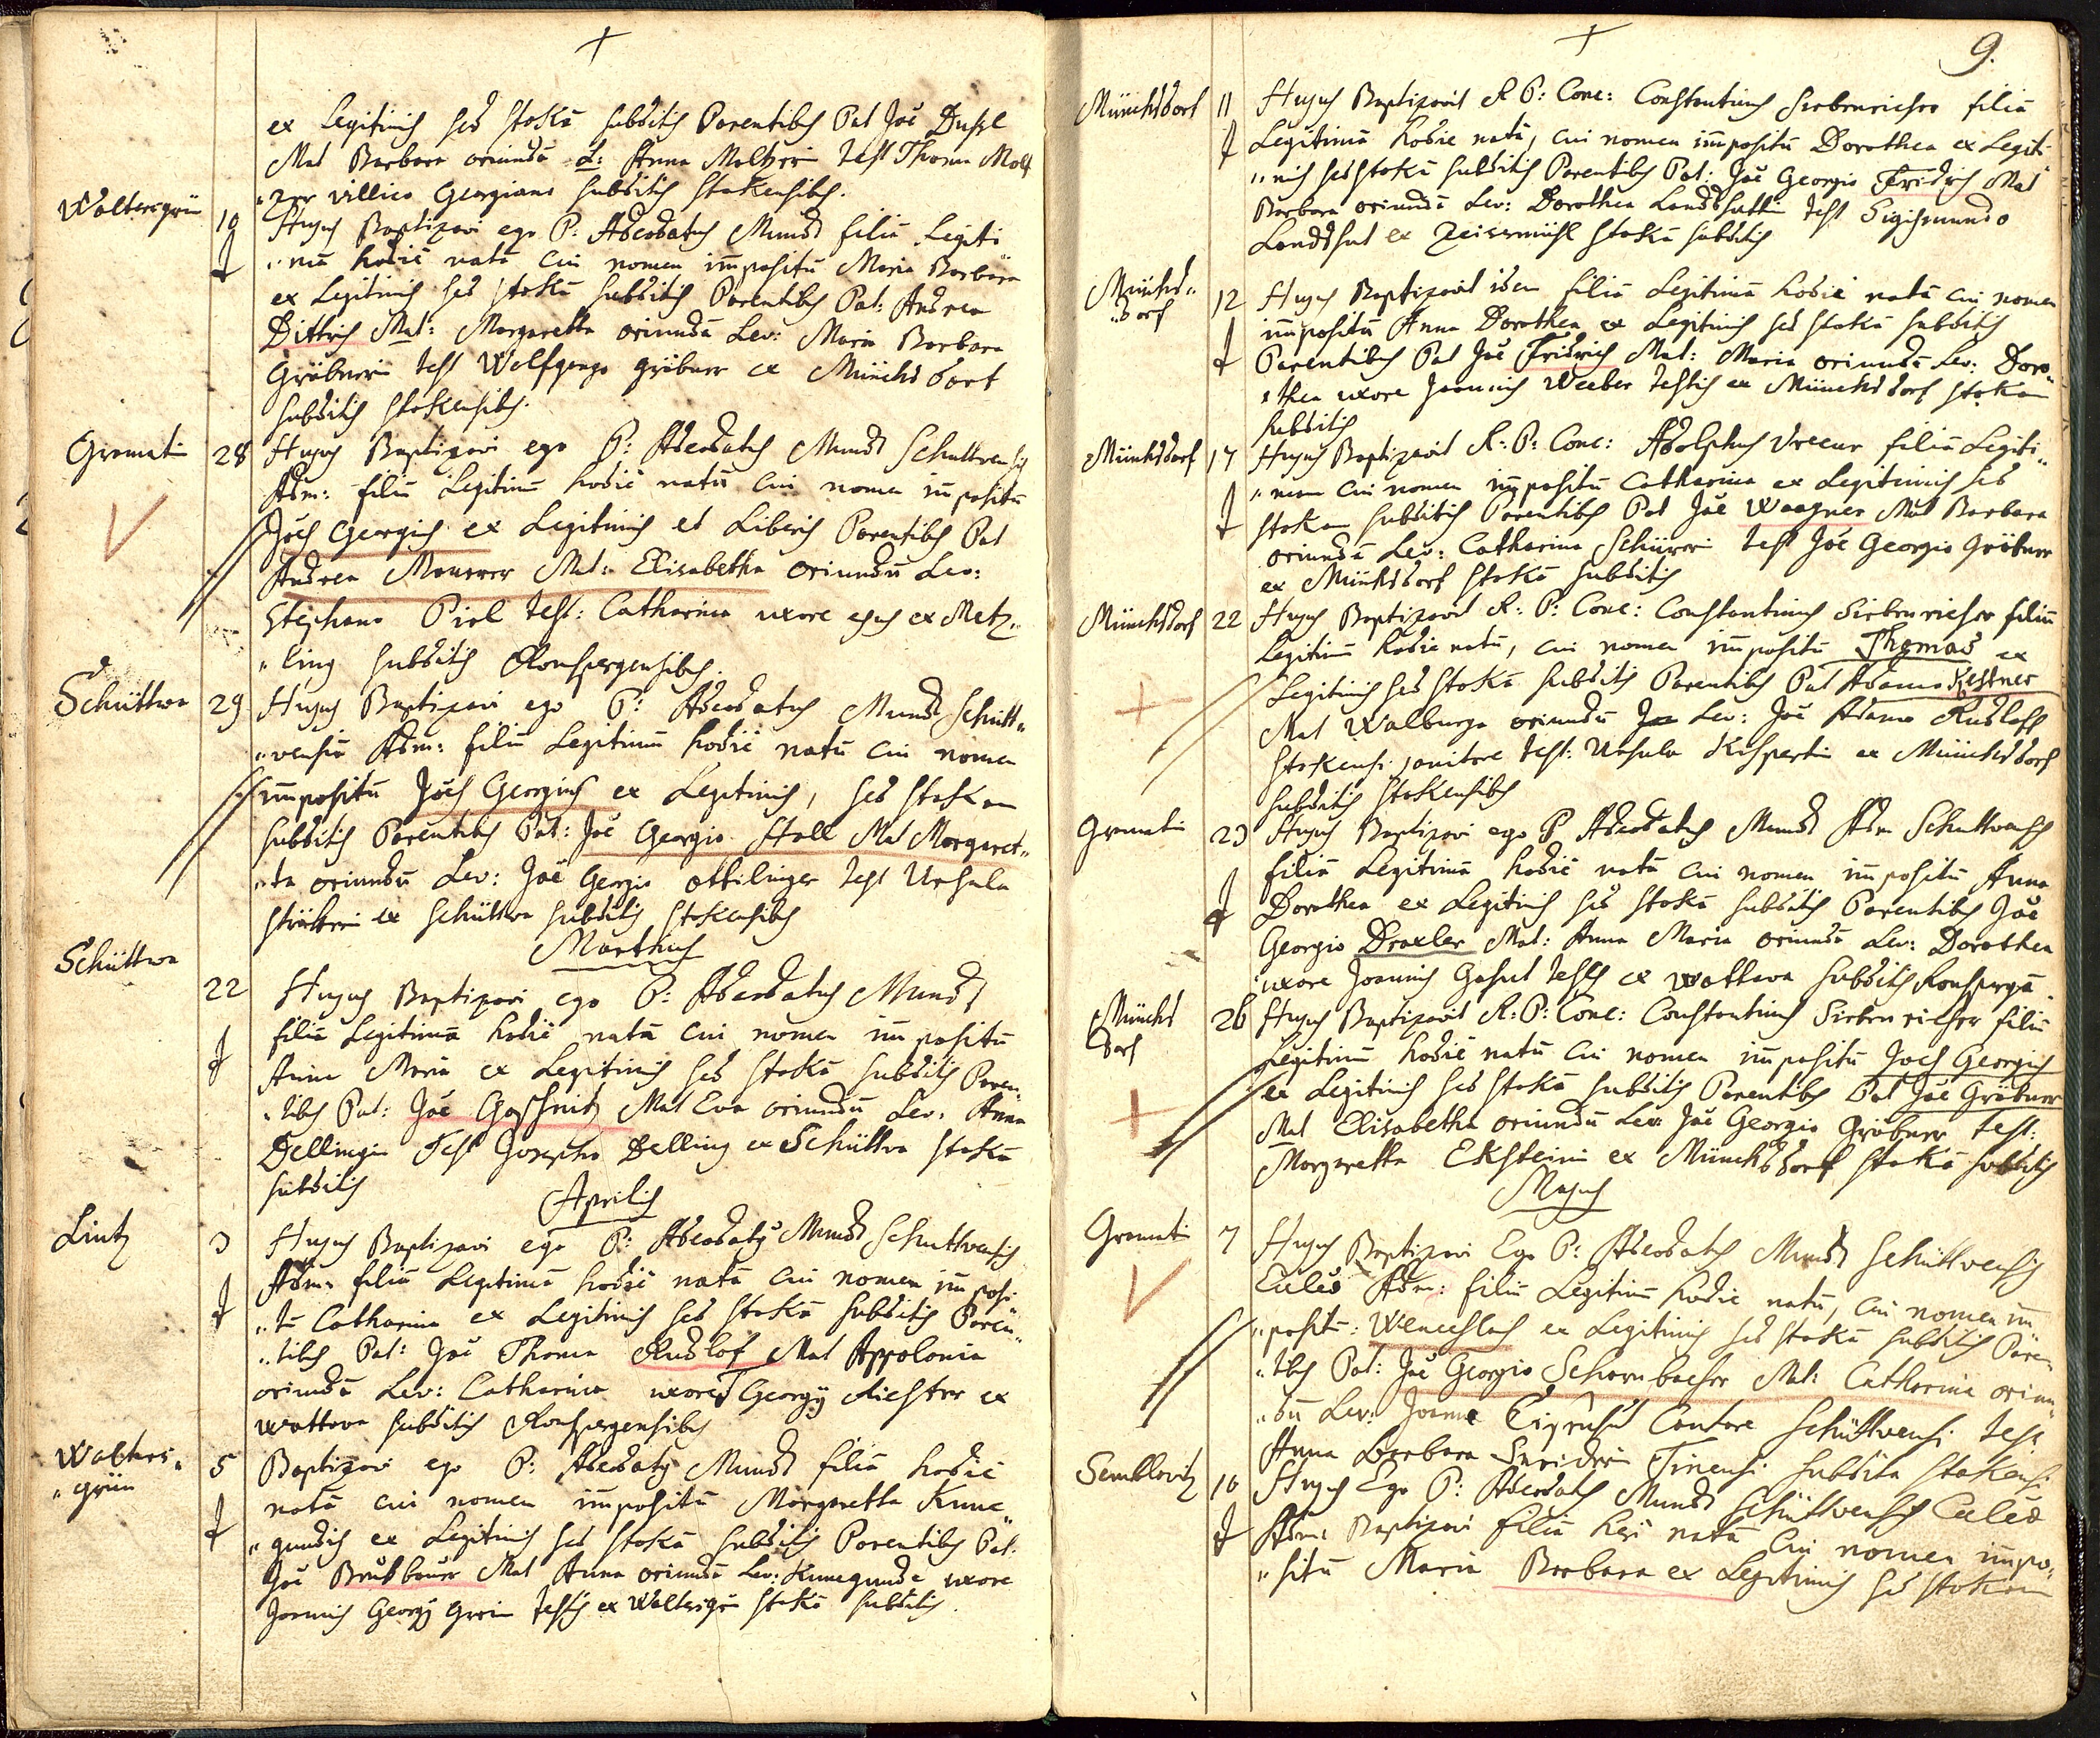 ex Legitimis sed stokã subditis Parentibs Pat Joe Duszl
Mat Barbara oriundã L: Anna Moltzerin test Thoma Molt
„zer villico Georgiano subditis stokensibs.
Woltersgrün 10 Hujus Baptizavi ego P: Adeodatus Mundt filiã Legiti
„mã hodie natã cui nomen impositũ Maria Barbara
ex Legitimis sed stokã subditis Parentibs Pat: Andrea
Dittrich Mat: Margaretha oriundã Lev: Maria Barbara
Gröbnerin test Wolfgango gröbner ex Münchsdorf
subditis stokensibs.
Gramatin 28 Hujus Baptizavi ego P: Adeodatus Mundt Schuttvensis
Adm: filiũ Legitimũ hodie natũ cui nomen impositũ
Joes Georgius ex Legitimis et Liberis Parentibs Pat
Andrea Meurrer Mat: Elisabetha oriundũ Lev:
Stephano Pirl test: Catharina uxore ejus ex Metz„
„ling subditis Ronspergensibs.
Schüttwa 29 Hujus Baptizavi ego P: Adeodatus Mundt Schutt„
„vensiũ Adm: filiũ Legitimũ hodie natũ cui nomen
impositũ Joes Georgius ex Legitimis, sed stokan
subditis Parentibs Pat: Joe Georgio Stoll Mat Margaret„
„ta oriundũ Lev: Joe Georgio Ottilinger test Ursula
ex Schüttwa subditis stokensibs
Martius
Schüttwa 22 Hujus Baptizavi ego P: Adeodatus Mundt
filiã Legitimã hodie natã cui nomen impositũ
Anna Maria ex Legitimis sed stokã subditis Paren
„tibs Pat: Joe Goschnitz Mat Eva oriundũ Lev: Anna
Dellingin Test Josepho Delling ex Schüttva stokã
subditis
Aprilis
Lintz 3 Hujus Baptizavi ego P: Adeodatus Mundt Schuttvensis
Adm: filiã Legitimã hodie natã cui nomen imposi
„tũ Catharina ex Legitimis sed stokã subditis Paren„
„tibs Pat: Joe Thoma Rudlof Mat Appolonia
oriundã Lev: Catharina uxore Georgÿ Richter ex
Wottova subditis Ronspergensibs
Wolters„ 5 Baptizavi ego P: Adeodatus Mundt filiã hodie
„grün natã cui nomen impositũ Margaretha Kune„
„gundis ex Legitimis sed stokã subditis Parentibs Pat:
Joe Bruksbauer Mat Anna oriundã Lev: Kunegunde uxore
Joannis Georgÿ Grein testis ex Woltersgrün stokã subditis.
9.
Münchsdorf 11 Hujus Baptizavit R P: Conc: Constantinus Siebenricher filiã
Legitimã hodie natã, cui nomen impositũ Dorothea ex Legiti„
„mis sed stokã subditis Parentibs Pat: Joe Georgio Fridrich Mat
Barbara oriundã Lev: Dorothea Landshuttin test Sigismundo
Landshut ex Zeisermühl stokã subditis
Münchs„ 12 Hujus Baptizavit idem filiã Legitimã hodie natã cui nomen
„dorf impositũ Anna Dorothea ex Legitimis sed stokã subditis
Parentibs Pat Joe Fridrich Mat: Maria oriundã Lev: Doro„
„thea uxore Joannis Weeber testis ex Münchsdorf stokan
subditis
Münchsdorf 17 Hujus Baptizavit R: P: Conc: Adolphus Vrecur filiã Legiti„
„mam cui nomen impositũ Catharina ex Legitimis sed
stokan subditis Parentibs Pat Joe Waagner Mat Barbara
oriundã Lev: Catharina Schürrin test Joe Georgio Gröbner
ex Münchsdorf stokã subditis
Münchsdorf 22 Hujus Baptizavit R: P: Conc: Constantinus Siebenricher filiũ
Legitimũ hodie natũ, cui nomen impositũ Thomas ex
Legitimis sed stokã subditis Parentibs Pat Adamo Kestner
Mat Walburga oriundũ Lev: Joe Adamo Rudloff
stokensi janitore test: Ursula Kispertin ex Münchsdorf
subditis stokensibs
Gramatin 23 Hujus Baptizavi ego P Adeodatus Mundt Adm Schuttvensis
filiã Legitimã hodie natã cui nomen impositũ Anna
Dorothea ex Legitimis sed stokã subditis Parentibs Joe
Georgio Draxler Mat: Anna Maria oriundã Lev: Dorothea
uxore Joannis Gosut testis ex Wottava subditis Ronspergã.
Münchs 26 Hujus Baptizavit R: P: Conc: Constantinus Siebenricher filiũ
dorf Legitimũ hodie natũ cui nomen impositũ Joes Georgius
ex Legitimis sed stokã subditis Parentibs Pat Joe Gröbner
Mat Elisabetha oriundũ Lev Joe Georgio Gröbner test:
Margaretha Eksteinin ex Münchsdorf stokã subditis
Majus
Gramatin 7 Hujus Baptizavi Ego P: Adeodatus Mundt Schüttvensis
Eccles Adm: filiũ Legitimũ hodie natũ, cui nomen im
„positũ: Wenceslaus ex Legitimis sed stokã subditis Paren
„tibs Pat: Joe Georgio Schornbacher Mat: Catharina oriun„
„dũ Lev: Joanne Cantore Schüttvensi test
Anna Barbara Sneidrin Tinensi subdita stokensi
Semblovitz 10 Hujus Ego P: Adeodatus Mundt Schüttvensis Eccles
Adm: Baptizavi filiã heri natã cui nomen impo„
„sitũ Maria Barbara ex Legitimis sed stokan